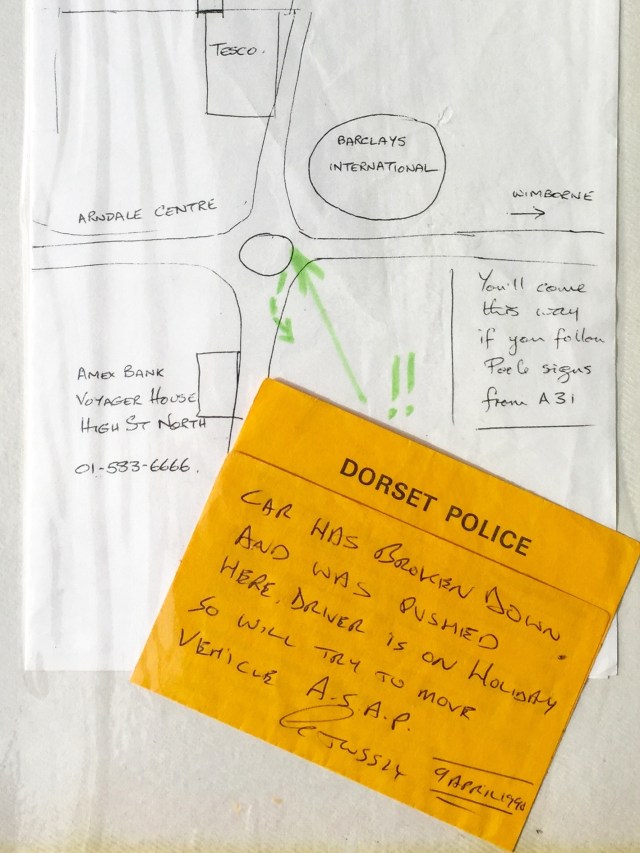 TESCO.
BARCLAYS
INTERNATIONAL
WIMBORNE
ARNDALE CENTRE
You'll come
this way
if you follow
Poole signs
from A31
!!
AMEX BANK
VOYAGER HOUSE
HIGH ST NORTH
01-533-6666.
DORSET POLICE
CAR HAS BROKEN DOWN
AND WAS PUSHED
HERE. DRIVER IS ON HOLIDAY
SO WILL TRY TO MOVE
VEHICLE A.S.A.P.
9 APRIL